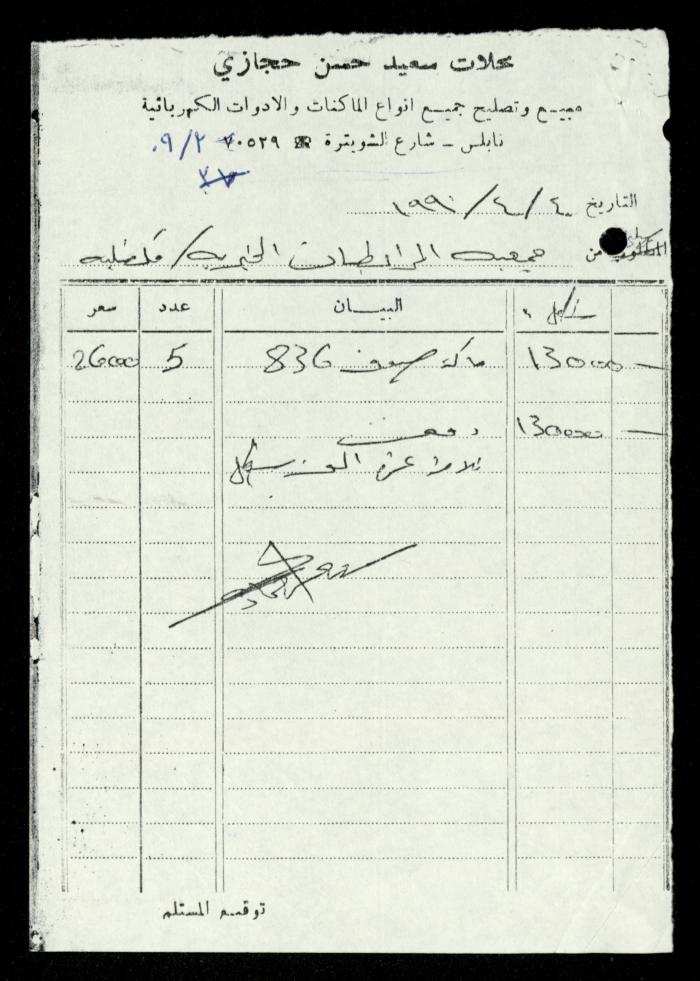 محلات سعيد حسن حجازي
مبيع وتصليح جميع انواع الماكنات والادوات الكهربائية
نابلس - شارع الشويترة ☎ ٧٠٥٢٩ ٠٩/٢
التاريخ ٤/٤/١٩٩٠
المطلوب من جمعية المرابطات الخيرية / قلقيلية
شيكل البيان عدد سعر
13000 ماكنة صوف 836 5 2600
13000 دفعت
ثلاثة عشرة الف شيكل
توقيع المستلم